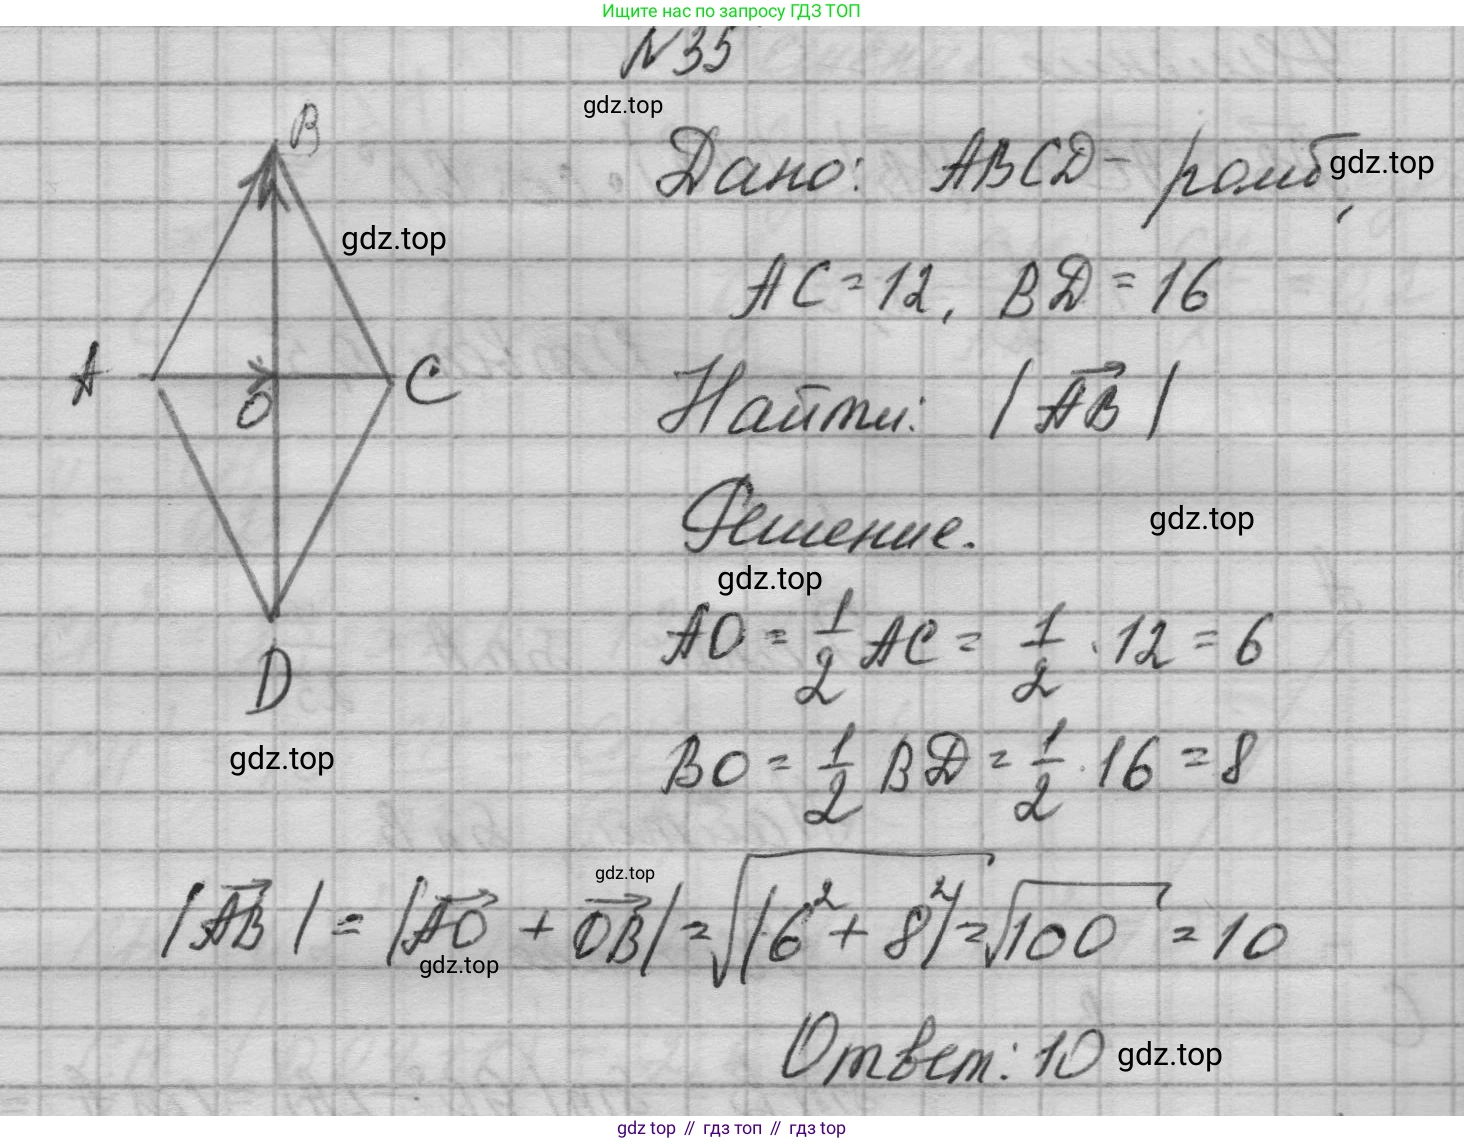 Ищите нас по запросу ГДЗ ТОП
N35
gdz.top
B
Дано: ABCD - ромб,
gdz.top
gdz.top
AC = 12, BD = 16
A
O
C
Найти: |AB|
Решение.
gdz.top
gdz.top
AO = 1/2 AC = 1/2 · 12 = 6
D
gdz.top
BO = 1/2 BD = 1/2 · 16 = 8
gdz.top
|AB| = |AO + OB| = √|6² + 8²| = √100 = 10
gdz.top
Ответ: 10
gdz.top
gdz top // гдз топ // гдз top